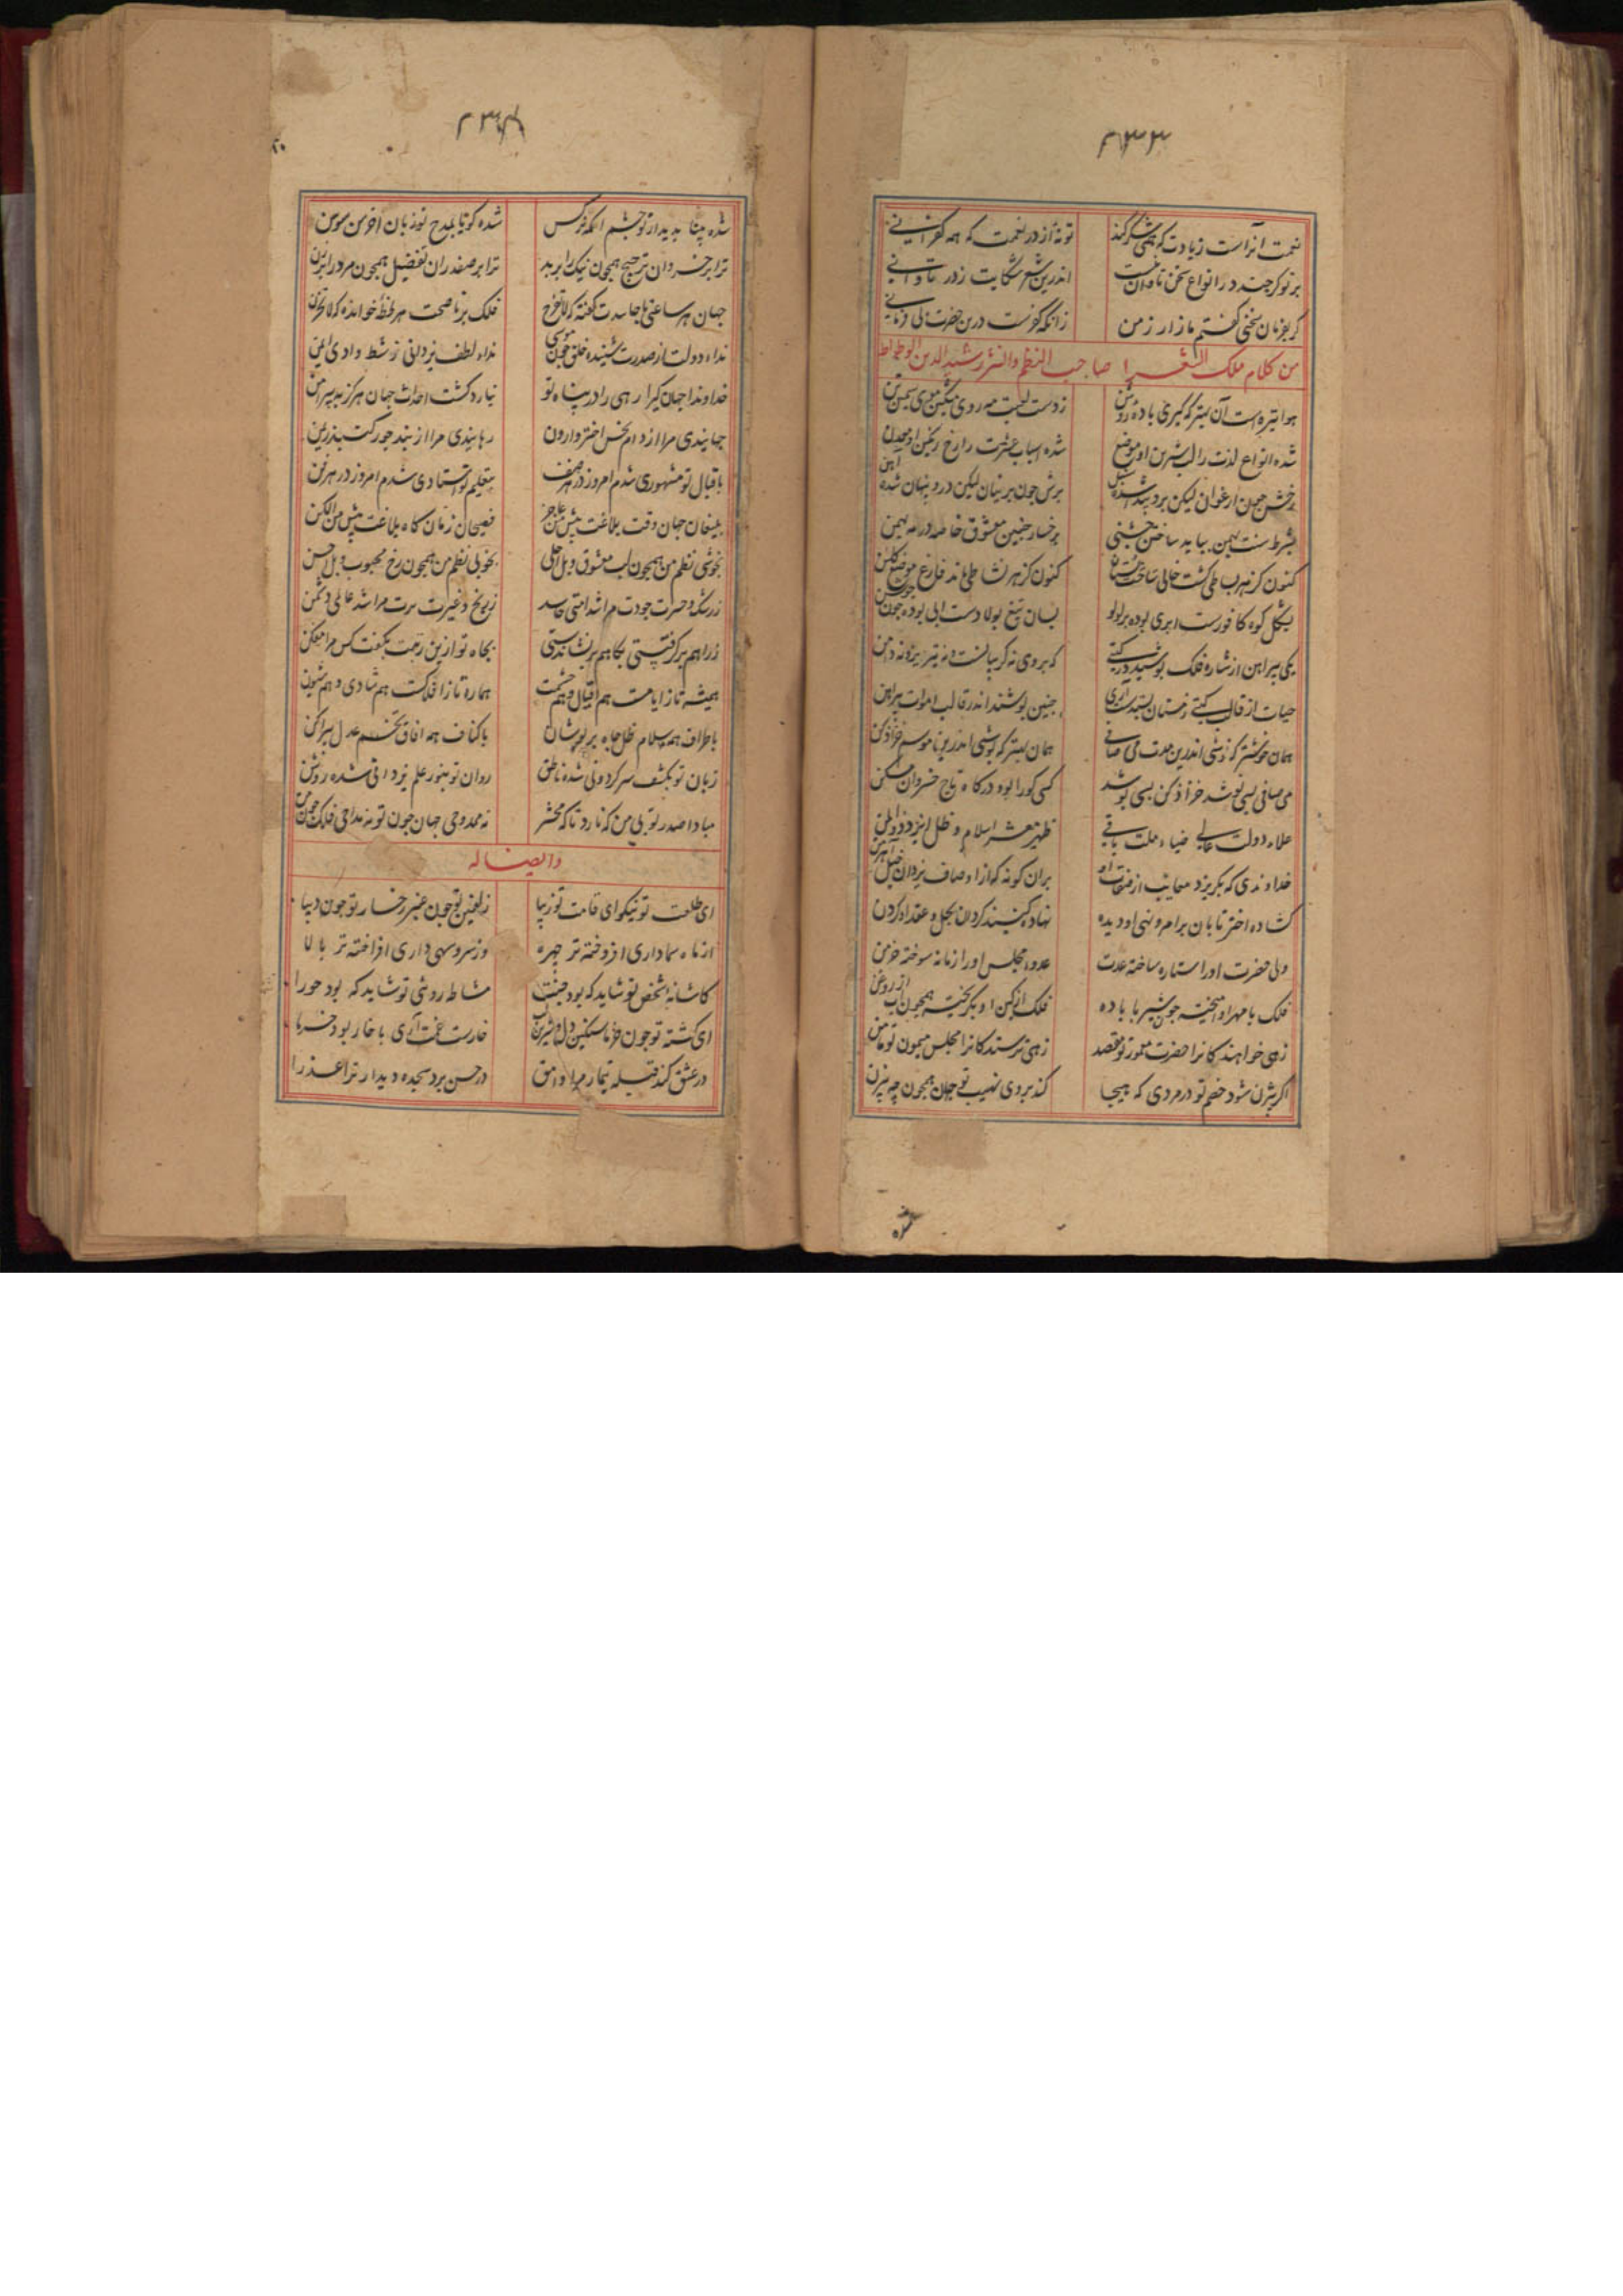 ۲۳۳
نعمت آنراست زیادت که همی شکر کند تو نه از در نعمت که همه کفرانی
بر تو کر چند در انواع سخن تاوان نیست اندرین شعر شکایت ز در تاوانی
کر بفرمان سخنی کفتم مازار ز من زانکه کفرست درین حضرت نافرمانی
من کلام ملک الشعرا صاحب النظم والنثر رشید الدین الوطواط
هوا تیره است آن بهتر که کیری باده روشن ز دست لعبت مه روی مشکین موی سیمین تن
شده انواع لذت را لب شیرین او موضع شده اسباب عشرت را رخ رنکین او معدن
رخش چون ارغوان لیکن برو بند شده سنبل برش چون پرنیان لیکن درو پنهان شده آهن
بشرط سنت بهمن بباید ساختن جشنی برخسار چنین معشوق خاصه در مه بهمن
کنون کز هر بساطی کشت خالی ساحت بستان کنون کز هر نشاطی ماند فارغ موضع کلشن
بشکل کوه کافورست ابری بوده پر لولو بسان تیغ پولادست آبی بوده چون جوشن
یکی پیراهن از شاره فلک پوشید در کیتی که بر وی نه کریبانست و نه تیریز و نه دامن
حیات از قالب کیتی زمستان بستد آری چنین پوشند اندر قالب اموات پیراهن
همان خوشتر که نوشی اندرین مدت می صافی همان بهتر که پوشی اندرین موسم خز ادکن
می صافی بسی نوشد خز ادکن بسی پوشد کسی کورا بود درکاه تاج خسروان مسکن
علاء دولت عالی ضیاء ملت باقی ظهیر معشر اسلام و ظل ایزد ذوالمن
خداوندی که بکریزد معایب از صفات او بران کونه که از اوصاف یزدان خیل اهریمن
کشاده اختر تابان برامر و نهی او دیده نهاده کنبد کردان بحل و عقد او کردن
ولی حضرت او را ستاره ساخته عدت عدو مجلس او را زمانه سوخته خرمن
فلک با مهر او آمیخته چون شیر با باده فلک از کین او بکریخته همچون آب از روغن
زهی خواهندکانرا حضرت معمور تو مقصد زهی ترسندکانرا مجلس میمون تو مامن
اکر بیژن شود خصم تو در مردی که هیجا کند بر وی نهیب تو جهان همچون چه بیژن
۲۳۴
شده بینا بدیدار تو چشم اکمه نرکس شده کویا بمدح تو زبان اخرس سوسن
ترا بر خسروان ترجیح همچون نیک را بر بد ترا بر صفدران تفضیل همچون مرد را بر زن
جهان هر ساعتی با حاسدت کفته که لا تفرح فلک بر ناصحت هر لحظه خوانده که لا تحزن
نداء دولت از صدرت شنیده خلق چون موسی نداء لطف یزدانی ز شط وادی ایمن
خداوندا جهانکیرا رهی را در پناه تو نیارد کشت احداث جهان هرکز بپیرامن
جهانیدی مرا از دام نحس اختر وارون رهانیدی مرا از بند جور کنبد ریمن
باقبال تو مشهوری شدم امروز در هر صنف بتعلیم تو استادی شدم امروز در هر فن
بلیغان جهان وقت بلاغت پیش من عاجز فصیحان زمان کاه بلاغت پیش من الکن
بخوشی نظم من همچون لب معشوق و بل احلی بخوبی نظم من همچون رخ محبوب و بل احسن
ز رشک و حسرت جودت مرا شد امتی حاسد ز رنج و غیرت برت مرا شد عالمی دشمن
بجاه تو ازین رتبت نیفکند کس مرا ممکن
همیشه تاز ایامست هم اقبال و هم حشمت هماره تاز افلاکست هم شادی و هم شیون
باطراف همه اسلام ظل جاه بر پوشان باکناف همه آفاق تخم عدل بپراکن
زبان تو بکشف سر کردونی شده ناطق روان تو بنور علم یزدانی شده روشن
مبادا صدر تو بی من که نارد تا که محشر نه ممدوحی جهان چون تو نه مداحی فلک چون من
وایضا له
ای طلعت تو نیکو ای قامت تو زیبا زلفین تو چون عنبر رخسار تو چون دیبا
از ماه سما داری افروخته تر چهره وز سرو سهی داری افراخته تر بالا
کاشانه شخص تو شاید که بود جنت مشاطه روی تو شاید که بود حورا
ای کشته تو چون خرما مسکین دل و شیرین لب خارست غمت آری با خار بود خرما
در عشق کند قبله تیمار مرا وامق در حسن برد سجده دیدار ترا عذرا